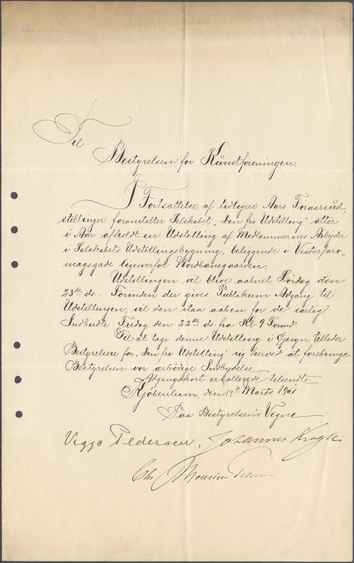 Til
Bestyrelsen for Kunstforeningen.
I Fortsættelse af tidligere Aars Foraarsud-
stillinger foranstalter Selskabet „den frie Udstilling" atter
i Aar afholdt en Udstilling af Medlemmernes Arbejder
i Selskabets Udstillingsbygning, beliggende i Vestre faro-
magsgade ligeoverfor
Udstillingen vil blive aabnet Lørdag den
23de ds. Forinden der gives Publikum Adgang til
Udstillingen, vil den staa aaben for de særlig
Indbudte Fredag den 22de ds fra Kl. 9 Form.
Til at tage denne Udstilling i Øjesyn tillader
Bestyrelsen for „den frie Udstilling" sig herved at frembringe
Bestyrelsen vor ærbødige Indbydelse.
Adgangskort vedlagt tilsendt.
Kjøbenhavn den Marts 1901
Paa Bestyrelsens Vegne
Viggo Pedersen. Johannes Kragh
Chr Mourier-Petersen